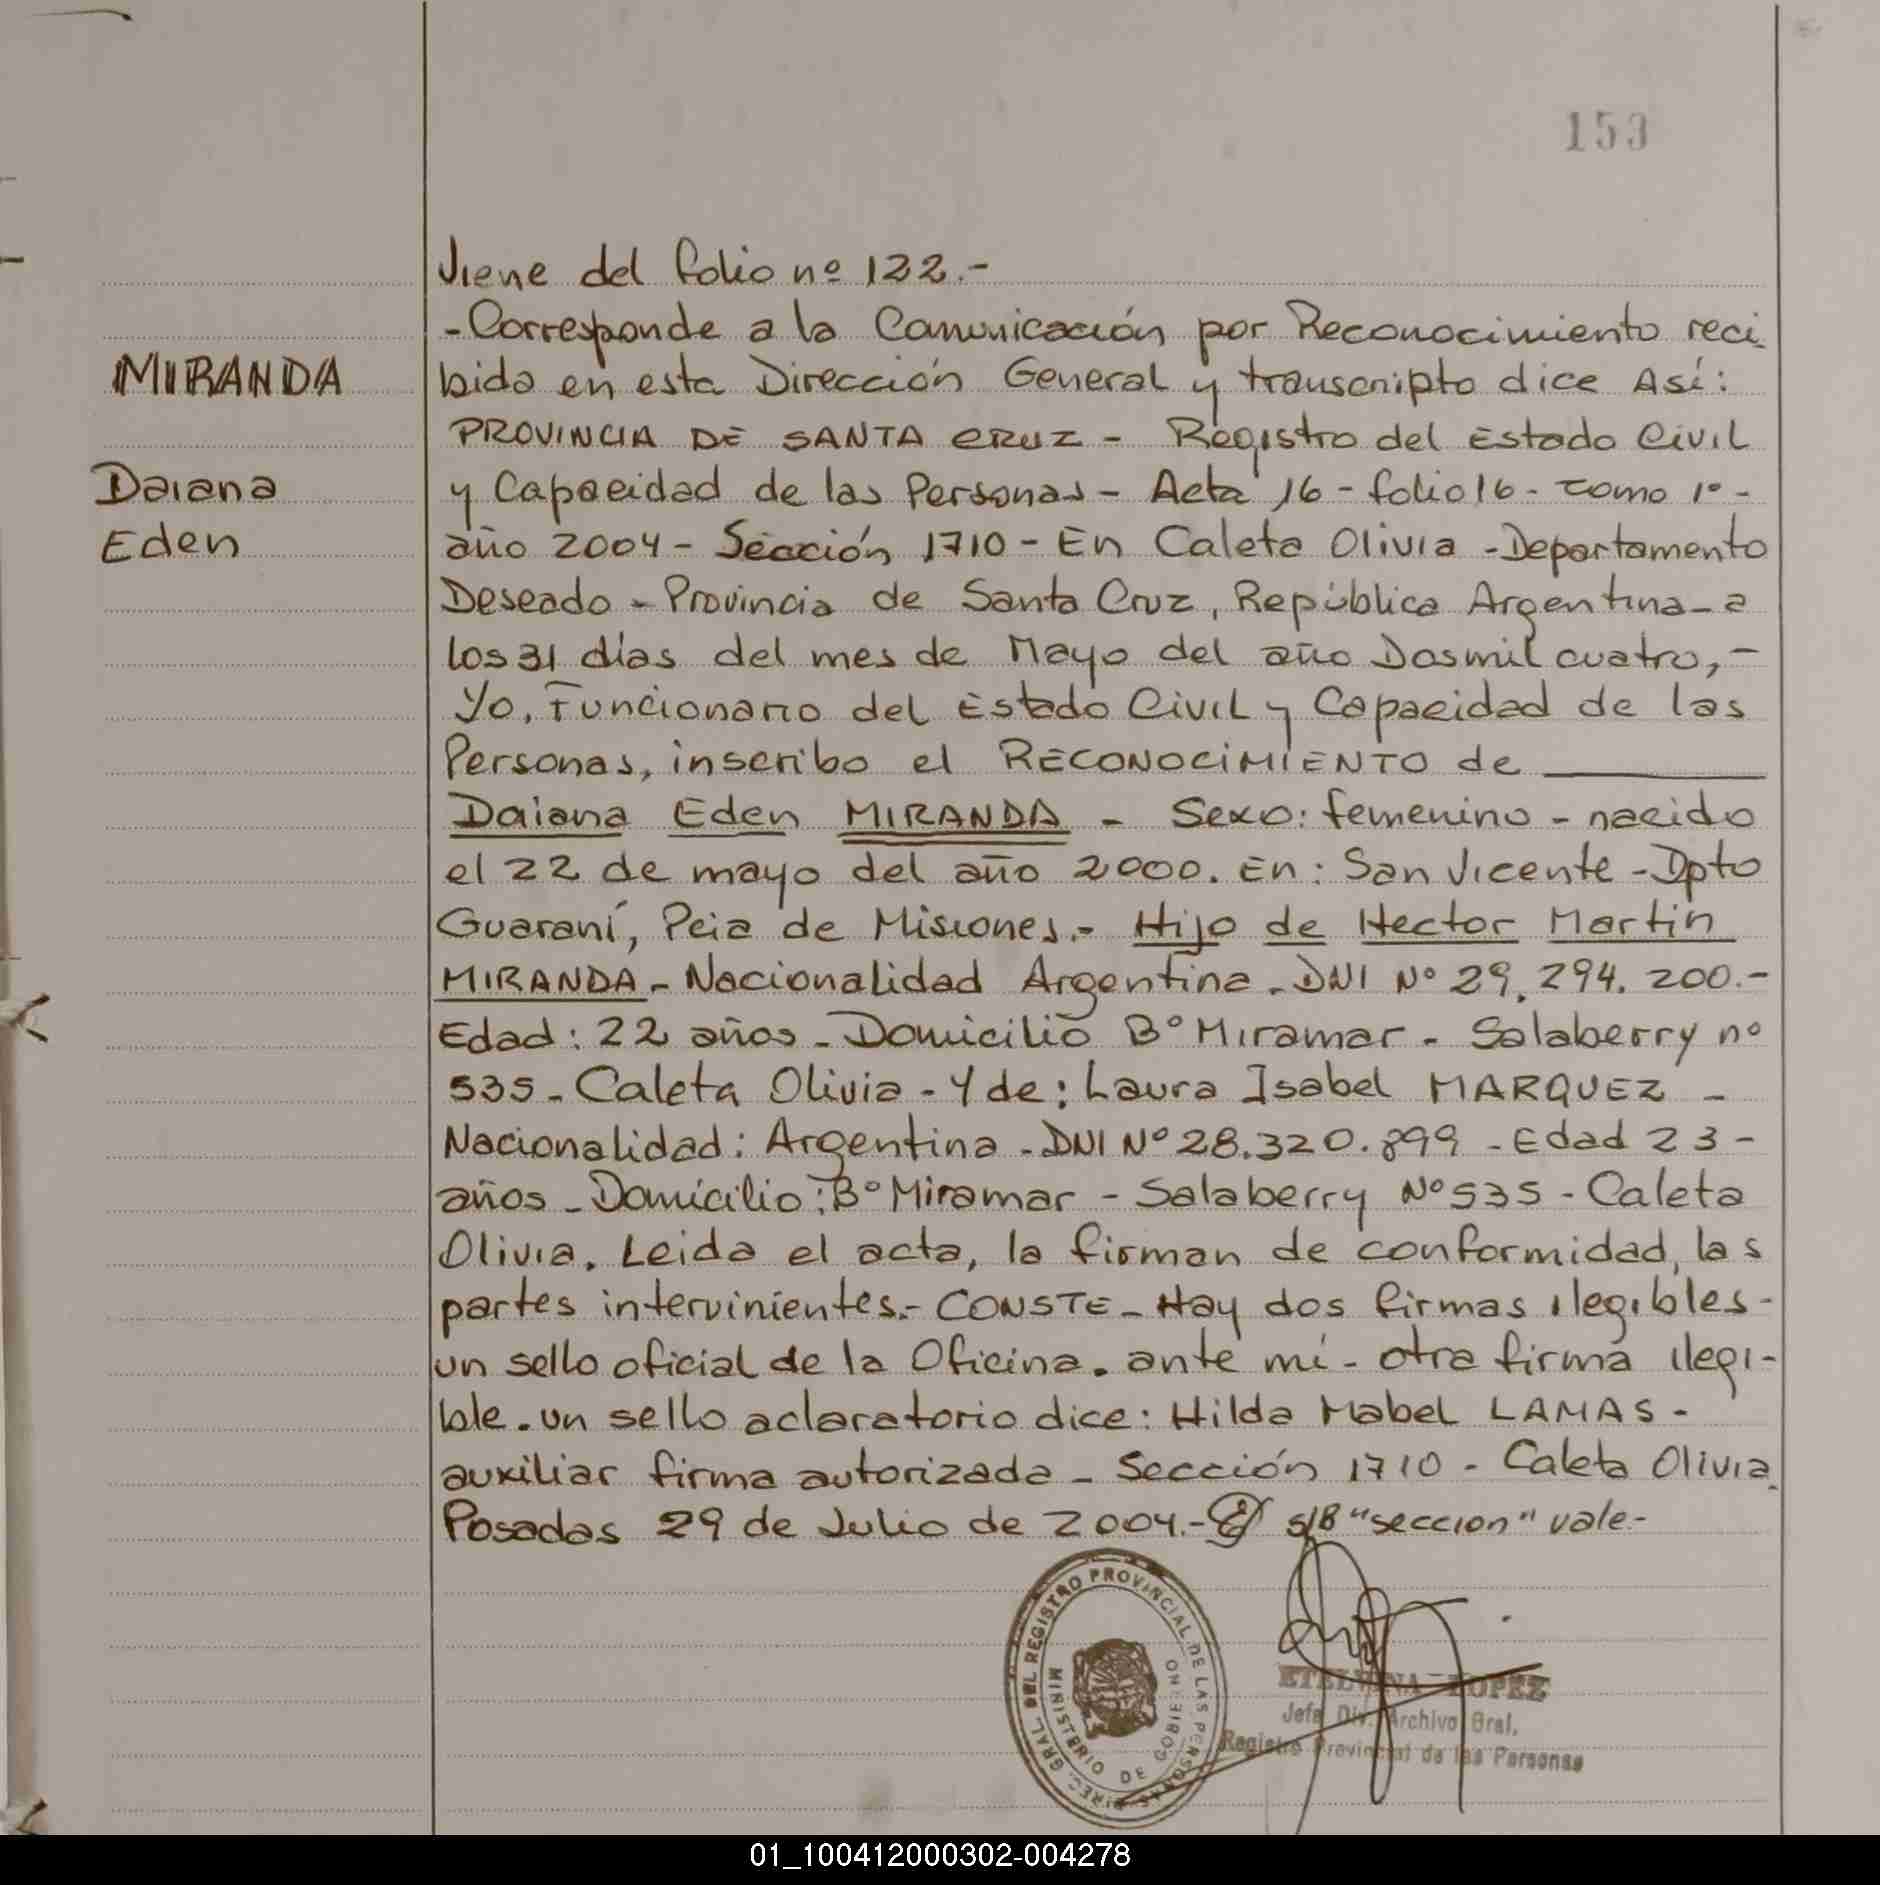 153
Viene del folio nº 122.-
-Corresponde a la Comunicación por Reconocimiento reci
MIRANDA
bida en esta Dirección General y transcripto dice Así:
PROVINCIA DE SANTA CRUZ - Registro del Estado Civil
Daiana
y Capacidad de las Personas - Acta 16 - folio 16 - tomo 1º -
Eden
año 2004 - Sección 1710 - En Caleta Olivia - Departamento
Deseado - Provincia de Santa Cruz, República Argentina - a
los 31 días del mes de Mayo del año Dosmil cuatro, -
Yo, Funcionario del Estado Civil y Capacidad de las
Personas, inscribo el RECONOCIMIENTO de
Daiana Eden MIRANDA - Sexo: femenino - nacido
el 22 de mayo del año 2000. En: San Vicente - Dpto
Guaraní, Pcia de Misiones.- Hijo de Hector Martin
MIRANDA - Nacionalidad Argentina. DNI Nº 29.294.200.-
Edad: 22 años - Domicilio Bº Miramar - Salaberry nº
535 - Caleta Olivia - Y de: Laura Isabel MARQUEZ -
Nacionalidad: Argentina - DNI Nº 28.320.899 - Edad 23 -
años - Domicilio: Bº Miramar - Salaberry Nº 535 - Caleta
Olivia. Leida el acta, la firman de conformidad, las
partes intervinientes.- CONSTE - Hay dos firmas ilegibles -
un sello oficial de la Oficina. ante mí - otra firma ilegi-
ble. un sello aclaratorio dice: Hilda Mabel LAMAS -
auxiliar firma autorizada - Sección 1710 - Caleta Olivia.
Posadas 29 de Julio de 2004.- S/B "seccion" vale-
DIREC. GRAL. DEL REGISTRO PROVINCIAL DE LAS PERSONAS
MINISTERIO DE GOBIERNO
ETELVINA LOPEZ
Jefa Div. Archivo Gral.
Registro Provincial de las Personas
01_100412000302-004278